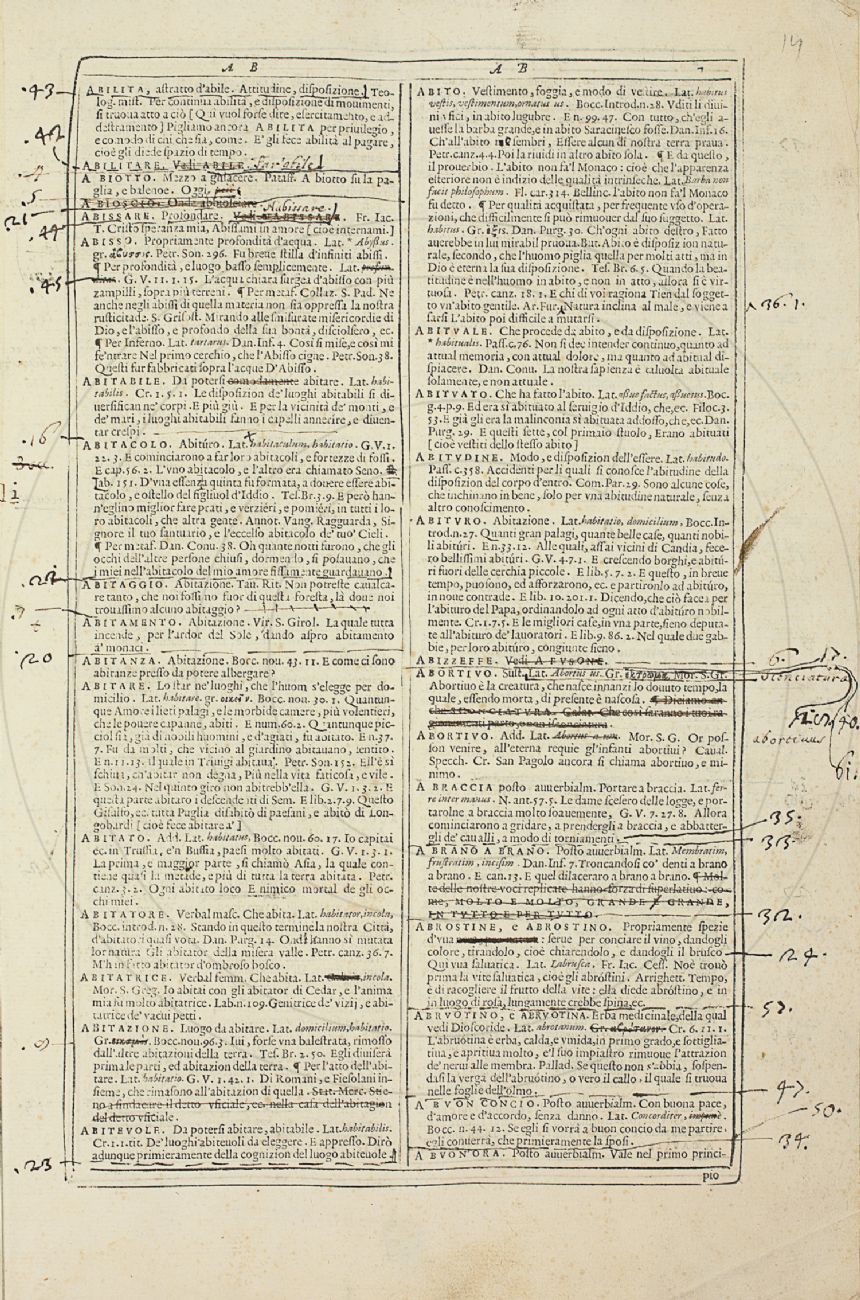 14
A B
ABILITA, astratto d'abile. Attitudine, disposizione. Teo-
log. mist. Per continua abilità, e disposizione di mouimenti,
si truoua atto a ciò [Qui vuol forse dire, esercitamento, e ad-
destramento] Pigliamo ancora ABILITA per priuilegio,
e comodo di cui che sia, come. E' gli fece abilità al pagare,
cioè gli diede spazio di tempo.
ABILITARE. Vedi ABILE. Far abile
A BIOTTO. Mezzo a giacere. Pataff. A biotto su la pa-
glia, e balenoe. Oggi
ABISSARE. Profondare. Abissare. Fr. Iac.
T. Cristo speranza mia, Abissami in amore [cioè internami.]
ABISSO. Propriamente profondità d'acqua. Lat. * Abyssus.
gr. Petr. Son. 296. Fu breue stilla d'infiniti abissi.
¶ Per profondità, e luogo basso semplicemente. Lat.
G. V. 11. 1. 15. L'acqua chiara surgea d'abisso con più
zampilli, sopra più terreni. ¶ Per metaf. Collaz. S. Pad. Ne
anche negli abissi di quella materia non sia oppressa la nostra
rusticitade. S. Grisost. Mirando alle smisurate misericordie di
Dio, e l'abisso, e profondo della sua bontà, disciolsero, ec.
¶ Per Inferno. Lat. tartarus. Dan. Inf. 4. Così si mise, e così mi
fe'ntrare Nel primo cerchio, che l'Abisso cigne. Petr. Son. 38.
Questi fur fabbricati sopra l'acque D'Abisso.
ABITABILE. Da potersi comodamente abitare. Lat. habi-
tabilis. Cr. 1. 5. 1. Le disposizion de' luoghi abitabili si di-
uersifican ne' corpi. E più giù. E per la vicinità de' monti, e
de' mari, i luoghi abitabili fanno i capelli annerire, e diuen-
tar crespi.
ABITACOLO. Abitúro. Lat. habitaculum, habitatio. G. V. 1.
22. 3. E cominciarono a far loro abitacoli, e fortezze di fossi.
E cap. 56. 2. L'vno abitacolo, e l'altro era chiamato Seno.
Lab. 151. D'vna essenzia quinta fu formata, a douere essere abi-
tacolo, e ostello del figliuol d'Iddio. Tes. Br. 3. 9. E però han-
n'eglino miglior fare prati, e verzieri, e pomieri, in tutti i lo-
ro abitacoli, che altra gente. Annot. Vang. Ragguarda, Si-
gnore il tuo santuario, e l'eccelso abitacolo de' tuo' Cieli.
¶ Per metaf. Dan. Conu. 38. Oh quante notti furono, che gli
occhi dell'altre persone chiusi, dormendo, si posauano, che
i miei nell'abitacolo del mio amore fissamente guardauano.
ABITAGGIO. Abitazione. Tau. Rit. Non potreste caualca-
re tanto, che noi fossimo fuor di questa foresta, là doue noi
trouassimo alcuno abitaggio?
ABITAMENTO. Abitazione. Vir. S. Girol. La quale tutta
incende, per l'ardor del Sole, dando aspro abitamento
a' monaci.
ABITANZA. Abitazione. Bocc. nou. 43. 11. E come ci sono
abitanze presso da potere albergare?
ABITARE. Lo star ne' luoghi, che l'huom s'elegge per do-
micilio. Lat. habitare. gr. Bocc. nou. 30. 1. Quantun-
que Amore i lieti palagi, e le morbide camere, più volentieri,
che le pouere capanne, abiti. E num. 60. 2. Quantunque pic-
ciol sia, già di nobili huomini, e d'agiati, fu abitato. E n. 37.
7. Fu da molti, che vicino al giardino abitauano, sentito.
E n. 11. 13. Il quale in Triuigi abitaua. Petr. Son. 152. Ell'è sì
schiua, ch'abitar non degna, Più nella vita faticosa, e vile.
E Son. 24. Nel quinto giro non abitrebb'ella. G. V. 1. 3. 2. E
questa parte abitaro i descendenti di Sem. E lib. 2. 7. 9. Questo
Gisulfo, ec. tutta Puglia disabitò di paesani, e abitò di Lon-
gobardi [cioè fece abitare a']
ABITATO. Add. Lat. habitatus, Bocc. nou. 60. 17. Io capitai
ec. in Truffia, e'n Buffia, paesi molto abitati. G. V. 1. 3. 1.
La prima, e maggior parte, si chiamò Asia, la quale con-
tiene quasi la metade, e più di tutta la terra abitata. Petr.
canz. 3. 2. Ogni abitato loco E nimico mortal de gli oc-
chi miei.
ABITATORE. Verbal masc. Che abita. Lat. habitator, incola,
Bocc. introd. n. 28. Stando in questo termine la nostra Città,
d'abitatori quasi vota. Dan. Purg. 14. Ond'hanno sì mutata
lor natura Gli abitator della misera valle. Petr. canz. 36. 7.
M'han fatto abitator d'ombroso bosco.
ABITATRICE. Verbal femm. Che abita. Lat. incola.
Mor. S. Greg. Io abitai con gli abitator di Cedar, e l'anima
mia fu molto abitatrice. Lab. n. 109. Genitrice de' vizij, e abi-
tatrice de' vacui petti.
ABITAZIONE. Luogo da abitare. Lat. domicilium, habitatio.
Gr. Bocc. nou. 96. 3. Iui, forse vna balestrata, rimosso
dall'altre abitazioni della terra. Tes. Br. 2. 50. Egli diuiserà
prima le parti, ed abitazion della terra. ¶ Per l'atto dell'abi-
tare. Lat. habitatio. G. V. 1. 42. 1. Di Romani, e Fiesolani in-
sieme, che rimasono all'abitazion di quella. Stat. Merc. Sie-
no a sindacare il detto vficiale, ec. nella casa dell'abitagion
del detto vficiale.
ABITEVOLE. Da potersi abitare, abitabile. Lat. habitabilis.
Cr. 1. 1. tit. De' luoghi abiteuoli da eleggere. E appresso. Dirò
adunque primieramente della cognizion del luogo abiteuole.
.43
.42
.5
21
.44
.45
.16
.22
.20
.9
.23
A B
ABITO. Vestimento, foggia, e modo di vestire. Lat. habitus
vestis, vestimentum, ornatus us. Bocc. Introd. n. 28. Vditi li diui-
ni vfici, in abito lugubre. E n. 99. 47. Con tutto, ch'egli a-
uesse la barba grande, e in abito Saracinesco fosse. Dan. Inf. 16.
Ch'all'abito ne sembri, Essere alcun di nostra terra praua.
Petr. canz. 4. 4. Poi la riuidi in altro abito sola. ¶ E da questo,
il prouerbio. L'abito non fa'l Monaco: cioè che l'apparenza
esteriore non è indizio delle qualità intrinseche. Lat. Barba non
facit philosophum. Fl. car. 314. Bellinc. L'abito non fa'l Monaco
fu detto. ¶ Per qualità acquistata, per frequente vso d'opera-
zioni, che difficilmente si può rimuouer dal suo suggetto. Lat.
habitus. Gr. Dan. Purg. 30. Ch'ogni abito destro, Fatto
auerebbe in lui mirabil pruoua. But. Abito è disposizion natu-
rale, secondo, che l'huomo piglia quella per molti atti, ma in
Dio è eterna la sua disposizione. Tes. Br. 6. 5. Quando la bea-
titudine è nell'huomo in abito, e non in atto, allora si è vir-
tuosa. Petr. canz. 18. 1. E chi di voi ragiona Tien dal sogget-
to vn'abito gentile. Ar. Fur. Natura inclina al male, e viene a
farsi L'abito poi difficile a mutarsi.
ABITVALE. Che procede da abito, e da disposizione. Lat.
* habitualis. Pass. c. 76. Non si dee intender continuo, quanto ad
attual memoria, con attual dolore, ma quanto ad abitual di-
spiacere. Dan. Conu. La nostra sapienza è taluolta abituale
solamente, e non attuale.
ABITVATO. Che ha fatto l'abito. Lat. assuefactus, assuetus. Boc.
g. 4. p. 9. Ed era sì abituato al seruigio d'Iddio, che, ec. Filoc. 3.
53. E già gli era la malinconia sì abituata addosso, che, ec. Dan.
Purg. 29. E questi sette, col primaio stuolo, Erano abituati
[cioè vestiti dello stesso abito]
ABITVDINE. Modo, e disposizion dell'essere. Lat. habitudo.
Pass. c. 358. Accidenti per li quali si conosce l'abitudine della
disposizion del corpo d'entro. Com. Par. 29. Sono alcune cose,
che inchinano in bene, solo per vna abitudine naturale, senza
altro conoscimento.
ABITVRO. Abitazione. Lat. habitatio, domicilium, Bocc. In-
trod. n. 27. Quanti gran palagi, quante belle case, quanti nobi-
li abitúri. E n. 33. 12. Alle quali, assai vicini di Candia, fece-
ro bellissimi abitúri. G. V. 4. 7. 1. E crescendo borghi, e abitú-
ri fuori delle cerchia piccole. E lib. 5. 7. 2. E questo, in breue
tempo, puosono, ed afforzarono, ec. e partironlo ad abitúro,
in noue contrade. E lib. 10. 201. 1. Dicendo, che ciò facea per
l'abituro del Papa, ordinandolo ad ogni atto d'abitúro nobil-
mente. Cr. 1. 7. 5. E le migliori case, in vna parte, sieno deputa-
te all'abituro de' lauoratori. E lib. 9. 86. 2. Nel quale due gab-
bie, per loro abitúro, congiunte sieno.
ABIZZEFFE. Vedi A FVSONE.
ABORTIVO. Sust. Lat. Abortus us. Gr. Mor. S. Gr.
Abortiuo è la creatura, che nasce innanzi lo douuto tempo, la
quale, essendo morta, di presente è nascosa. ¶ Diciamo an-
che
ABORTIVO. Add. Lat. Mor. S. G. Or pos-
son venire, all'eterna requie gl'infanti abortiui? Caual.
Specch. Cr. San Pagolo ancora si chiama abortiuo, e mi-
nimo.
A BRACCIA posto auuerbialm. Portare a braccia. Lat. fer-
re inter manus. N. ant. 57. 5. Le dame scesero delle logge, e por-
tarolne a braccia molto soauemente, G. V. 7. 27. 8. Allora
cominciarono a gridare, a prendergli a braccia, e abbatter-
gli de' caualli, a modo di torniamenti.
A BRANO A BRANO. Posto auuerbialm. Lat. Membratim,
frustratim, incisim. Dan. Inf. 7. Troncandosi co' denti a brano
a brano. E can. 13. E quel dilaceraro a brano a brano. ¶ Mol-
te delle nostre voci replicate hanno forza di superlatiuo: co-
me, MOLTO E MOLTO, GRANDE E GRANDE,
IN TVTTO E PER TVTTO.
ABROSTINE, e ABROSTINO. Propriamente spezie
d'vua : serue per conciare il vino, dandogli
colore, tirandolo, cioè chiarendolo, e dandogli il brusco
Qui vua saluatica. Lat. Labrusca. Fr. Iac. Cess. Noè trouò
prima la vite saluatica, cioè gli abróstini. Arrighett. Tempo,
è di racogliere il frutto della vite: ella diede abróstino, e in
in luogo di rosa, lungamente crebbe spina, ec.
ABRVOTINO, e ABRVOTINA. Erba medicinale, della qual
vedi Dioscoride. Lat. abrotanum. Cr. 6. 11. 1.
L'abruótina è erba, calda, e vmida, in primo grado, e sottiglia-
tiua, e apritiua molto, e'l suo impiastro rimuoue l'attrazion
de' nerui alle membra. Pallad. Se questo non s'abbia, sospen-
dasi la verga dell'abruótino, o vero il callo, il quale si truoua
nelle foglie dell'olmo.
A BVON CONCIO. Posto auuerbialm. Con buona pace,
d'amore e d'accordo, senza danno. Lat. Concorditer,
Bocc. n. 44. 12. Se egli si vorrà a buon concio da me partire,
egli conuerrà, che primieramente la sposi.
A BVON'ORA. Posto auuerbialm. Vale nel primo princi-
pio
36.1.
6.
17.
Sconciatura
40.
abortiuus
61.
35.
33.
32.
24.
53.
47.
50.
34.